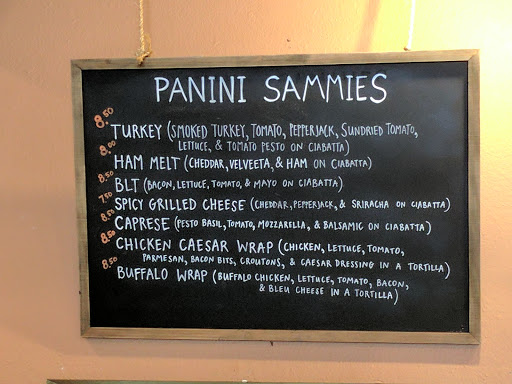 PANINI SAMMIES
8.50
TURKEY (SMOKED TURKEY, TOMATO, PEPPERJACK, SUNDRIED TOMATO,
LETTUCE, & TOMATO PESTO ON CIABATTA)
8.00
HAM MELT (CHEDDAR, VELVEETA, & HAM ON CIABATTA)
8.50
BLT (BACON, LETTUCE, TOMATO, & MAYO ON CIABATTA)
7.50
SPICY GRILLED CHEESE (CHEDDAR, PEPPERJACK, & SRIRACHA ON CIABATTA)
8.50
CAPRESE (PESTO BASIL, TOMATO, MOZZARELLA, & BALSAMIC ON CIABATTA)
8.50
CHICKEN CAESAR WRAP (CHICKEN, LETTUCE, TOMATO,
PARMESAN, BACON BITS, CROUTONS, & CAESAR DRESSING IN A TORTILLA)
8.50
BUFFALO WRAP (BUFFALO CHICKEN, LETTUCE, TOMATO, BACON,
& BLEU CHEESE IN A TORTILLA)